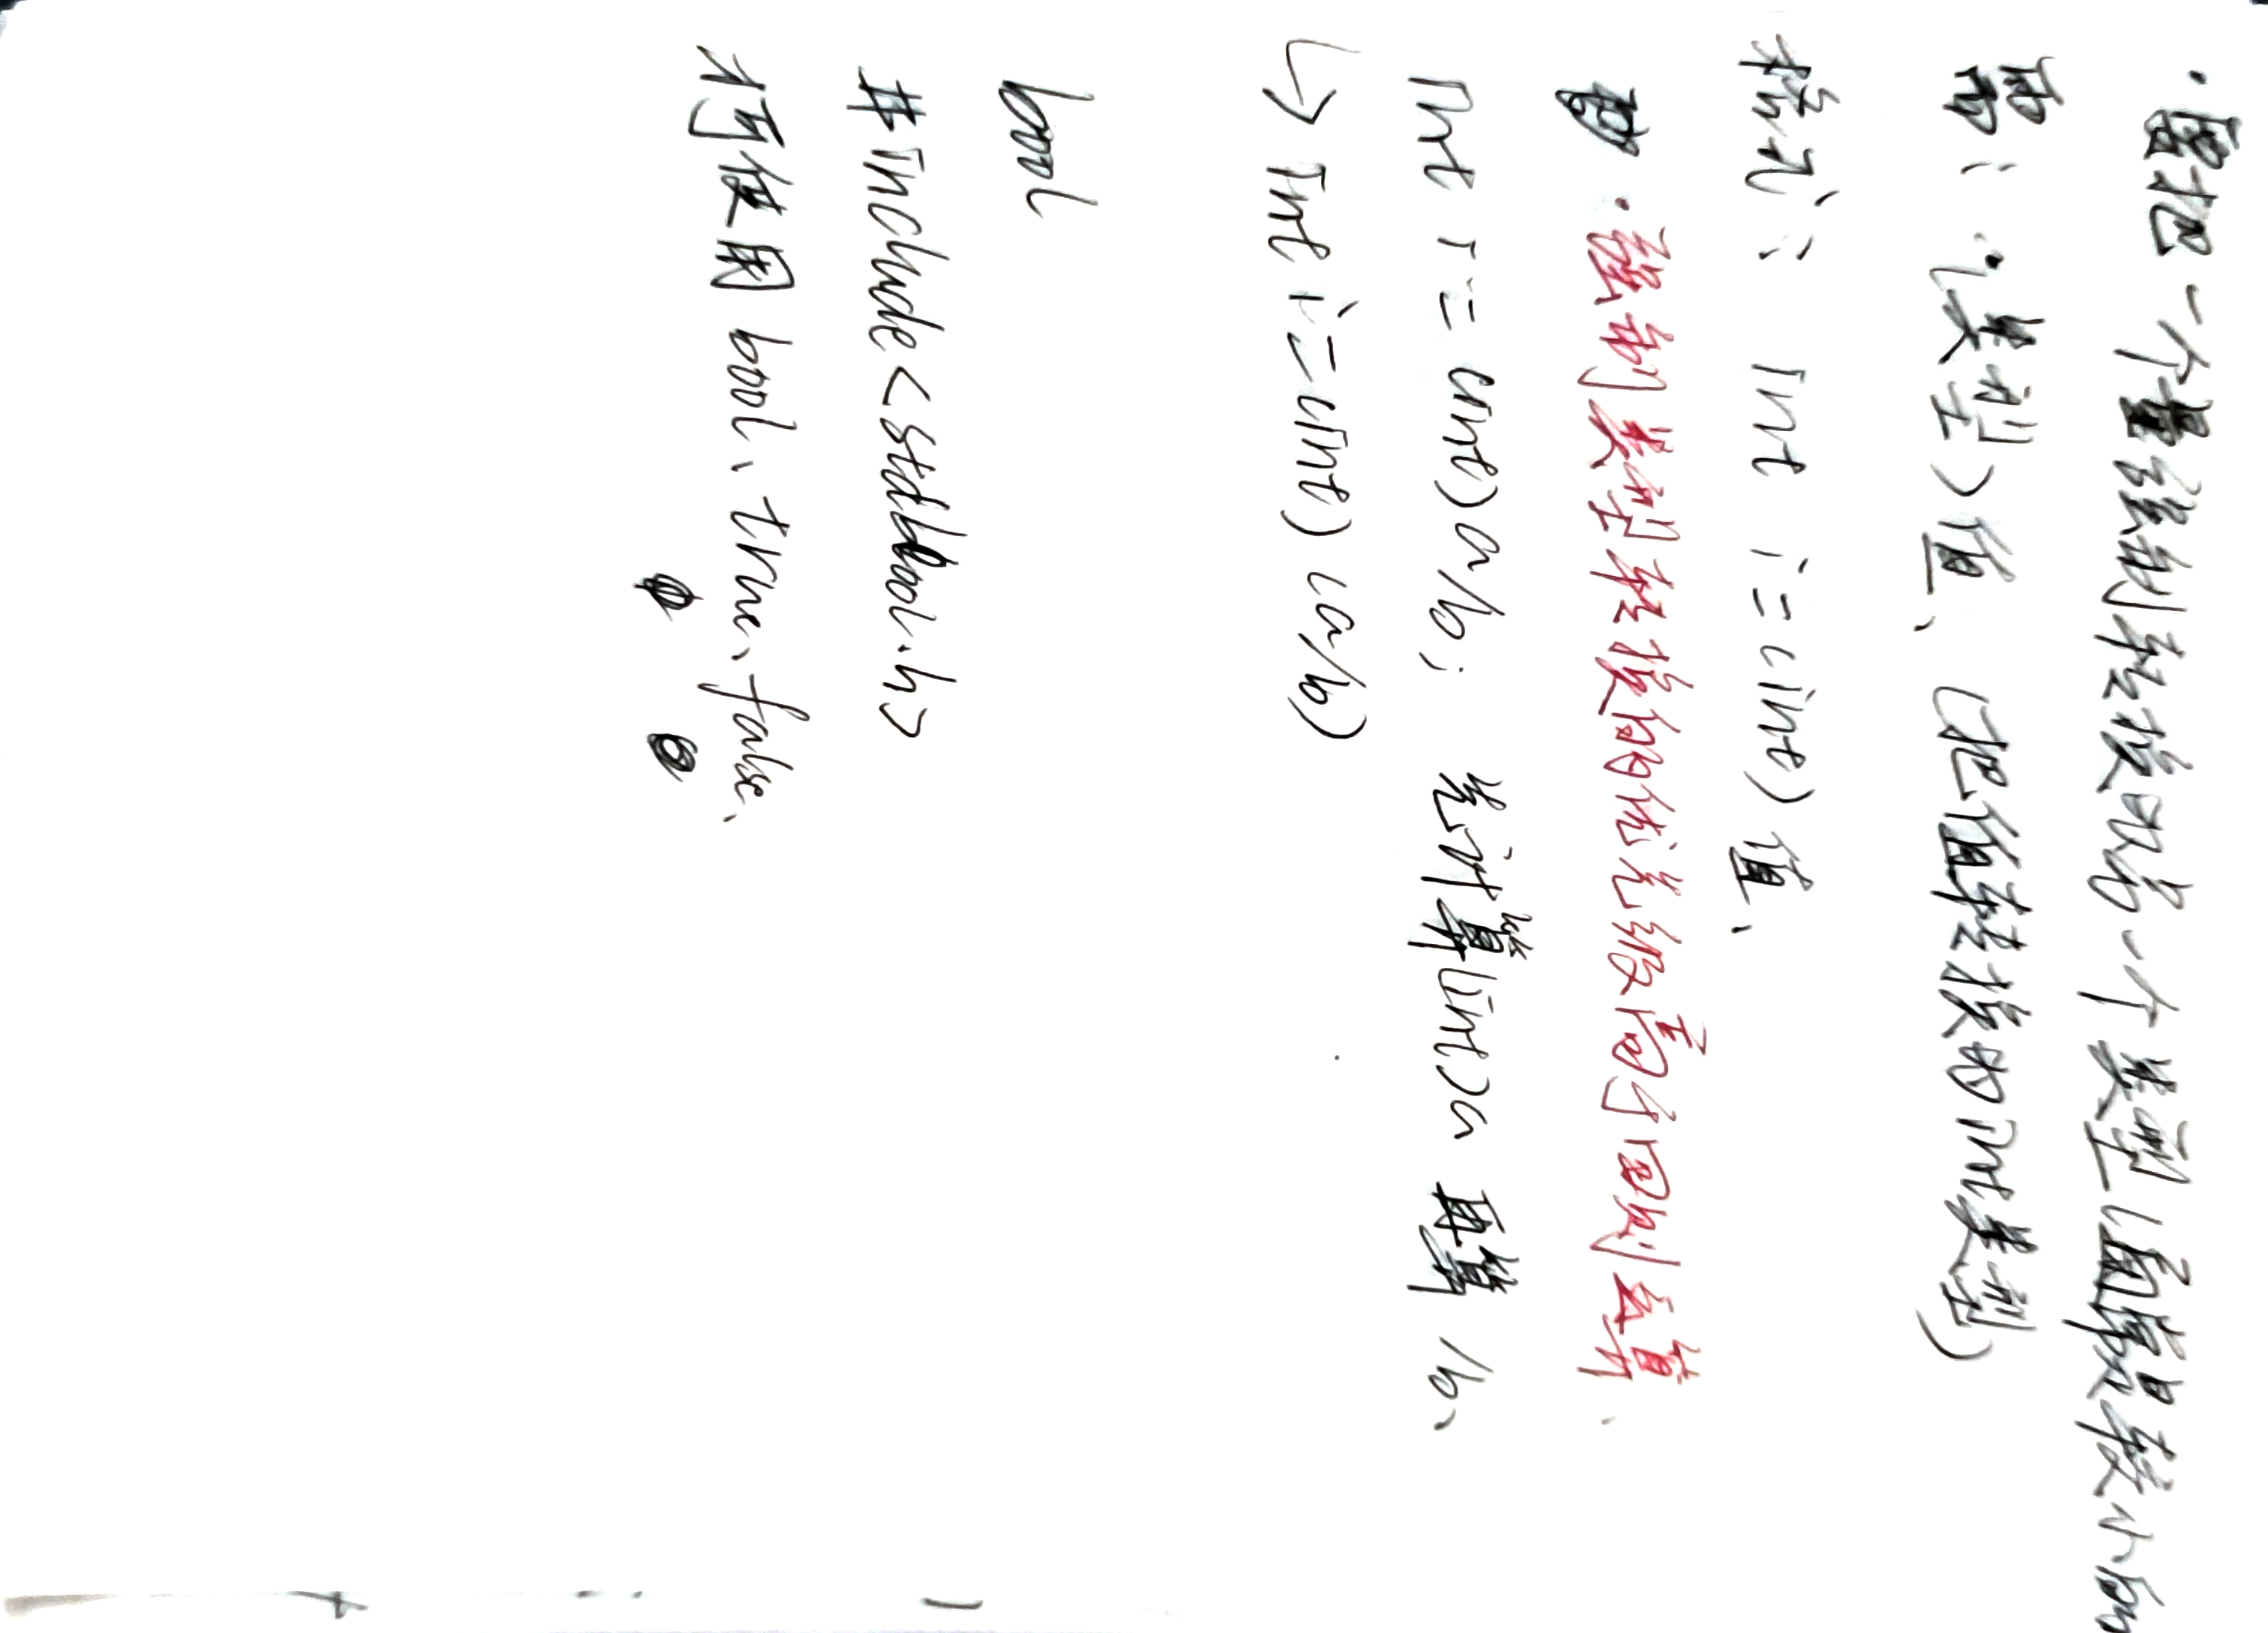 ·把一个量强制转换成另一个类型(通常是较小的
需: (类型)值、 (把值转换为int类型)
格式: int i=(int)值、
·强制类型转换的优先级高于四则运算、
int i=(int)a/b; 先计算(int)a 再算/b、
↳int i=(int)(a/b)
bool
#include<stdbool.h>
可使用bool、true、false、